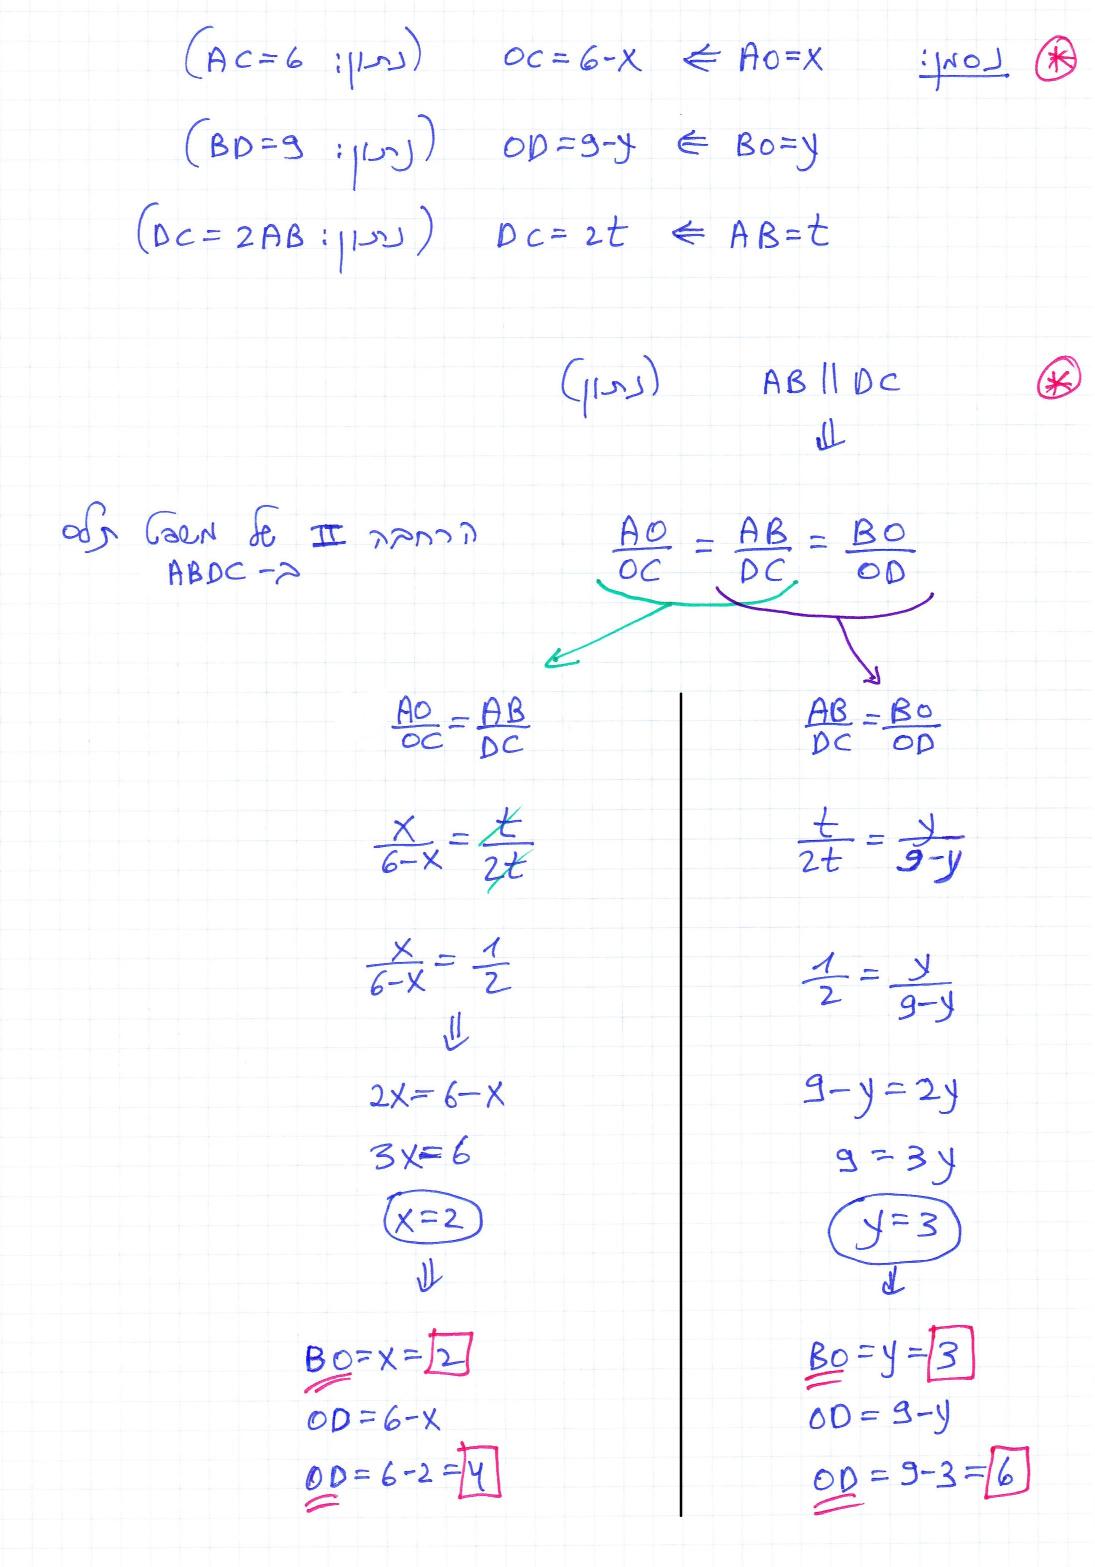 נסמן: AO=x ⇐ OC=6-x (נתון: AC=6)
BO=y ⇐ OD=9-y (נתון: BD=9)
AB=t ⇐ DC=2t (נתון: DC=2AB)
AB || DC (נתון)
⇓
AO/OC = AB/DC = BO/OD הרחבה II של משפט תלס
ב-ABDC
AO/OC = AB/DC
x/6-x = t/2t
x/6-x = 1/2
⇓
2x=6-x
3x=6
x=2
⇓
BO=x=2
OD=6-x
OD=6-2=4
AB/DC = BO/OD
t/2t = y/9-y
1/2 = y/9-y
9-y=2y
9=3y
y=3
⇓
BO=y=3
OD=9-y
OD=9-3=6